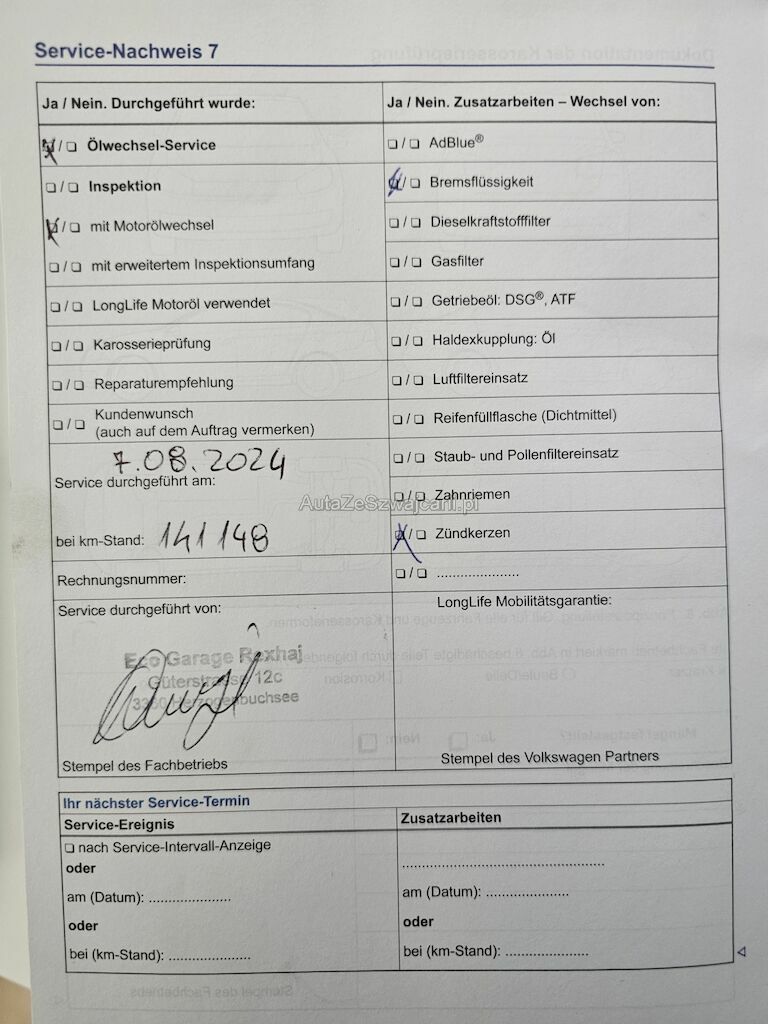 Service-Nachweis 7
Ja / Nein. Durchgeführt wurde:
Ölwechsel-Service
Inspektion
mit Motorölwechsel
mit erweitertem Inspektionsumfang
LongLife Motoröl verwendet
Karosserieprüfung
Reparaturempfehlung
Kundenwunsch
(auch auf dem Auftrag vermerken)
7.08.2024
Service durchgeführt am:
bei km-Stand: 141148
Rechnungsnummer:
Service durchgeführt von:
Eco Garage Rexhaj
Güterstrasse 12c
3360 Herzogenbuchsee
Stempel des Fachbetriebs
Ja / Nein. Zusatzarbeiten – Wechsel von:
AdBlue®
Bremsflüssigkeit
Dieselkraftstofffilter
Gasfilter
Getriebeöl: DSG®, ATF
Haldexkupplung: Öl
Luftfiltereinsatz
Reifenfüllflasche (Dichtmittel)
Staub- und Pollenfiltereinsatz
Zahnriemen
Zündkerzen
.....................
LongLife Mobilitätsgarantie:
Stempel des Volkswagen Partners
AutaZeSzwajcarii.pl
Ihr nächster Service-Termin
Service-Ereignis
nach Service-Intervall-Anzeige
oder
am (Datum): .....................
oder
bei (km-Stand): .....................
Zusatzarbeiten
....................................................
am (Datum): .....................
oder
bei (km-Stand): .....................